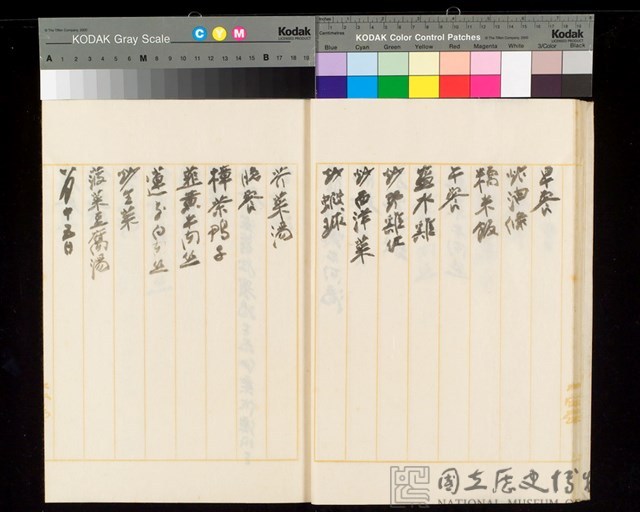 KODAK Gray Scale
C Y M
Kodak
A 1 2 3 4 5 6 M 8 9 10 11 12 13 14 15 B 17 18 19
KODAK Color Control Patches
Kodak
Blue Cyan Green Yellow Red Magenta White 3/Color Black
早餐
油條
糯米飯
午餐
鹽水雞
炒時雞片
炒西洋菜
炒蝦球
芥菜湯
晚餐
樟茶鴨子
韮黃牛肉絲
炒生菜
菠菜豆腐湯
八月十五日
國立歷史博物
NATIONAL MUSEUM OF